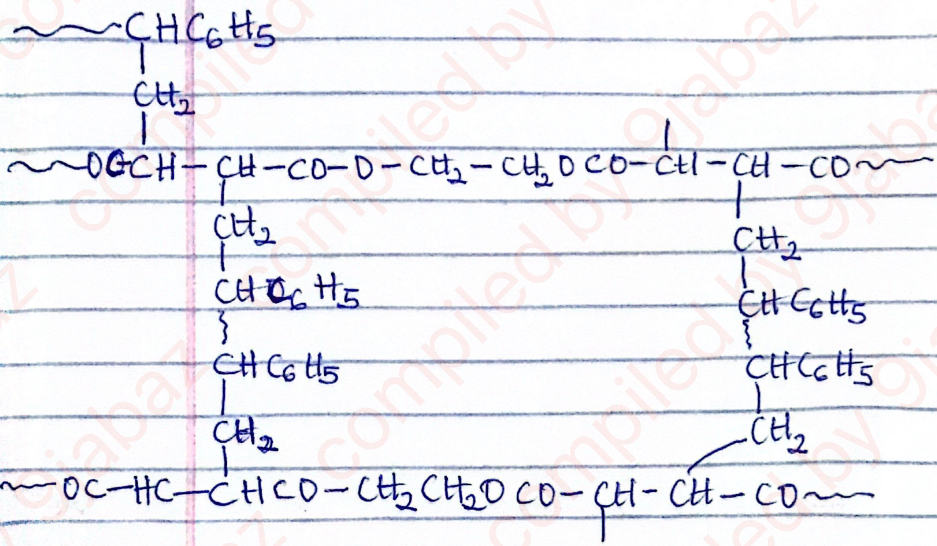 CHC6H5
CH2
~OCCH-CH-CO-O-CH2-CH2OCO-CH-CH-CO~
CH2 CH2
CHC6H5 CHC6H5
CHC6H5 CHC6H5
CH2 CH2
~OC-HC-CHCO-CH2CH2OCO-CH-CH-CO~
compiled by 9jabaz